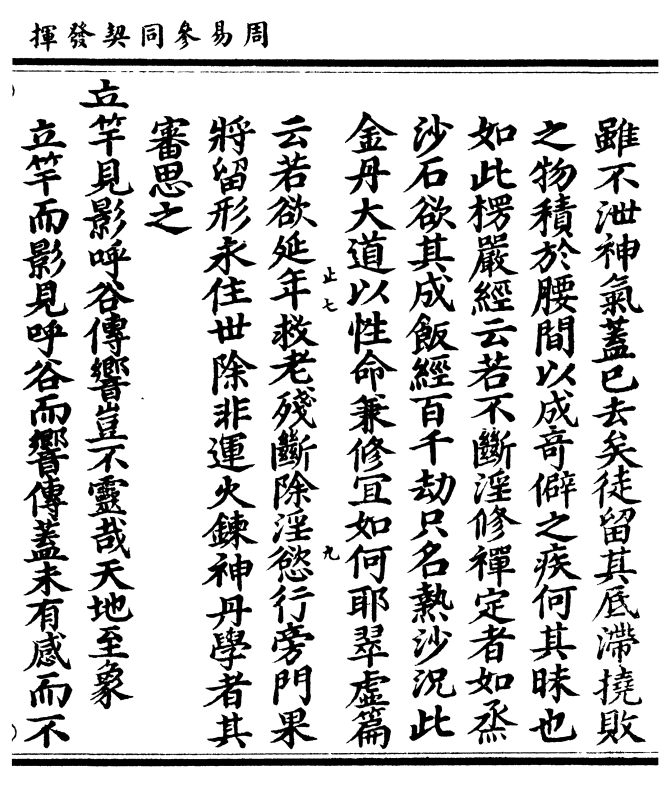 周易參同契發揮
雖不泄神氣蓋已去矣徒留其底滯撓敗
之物積於腰間以成奇僻之疾何其昧也
如此楞嚴經云若不斷淫修禪定者如烝
沙石欲其成飯經百千劫只名熱沙況此
金丹大道以性命兼修宜如何耶翠虛篇
止七
九
云若欲延年救老殘斷除淫慾行旁門果
將留形永住世除非運火鍊神丹學者其
審思之
立竿見影呼谷傳響豈不靈哉天地至象
立竿而影見呼谷而響傳蓋未有感而不